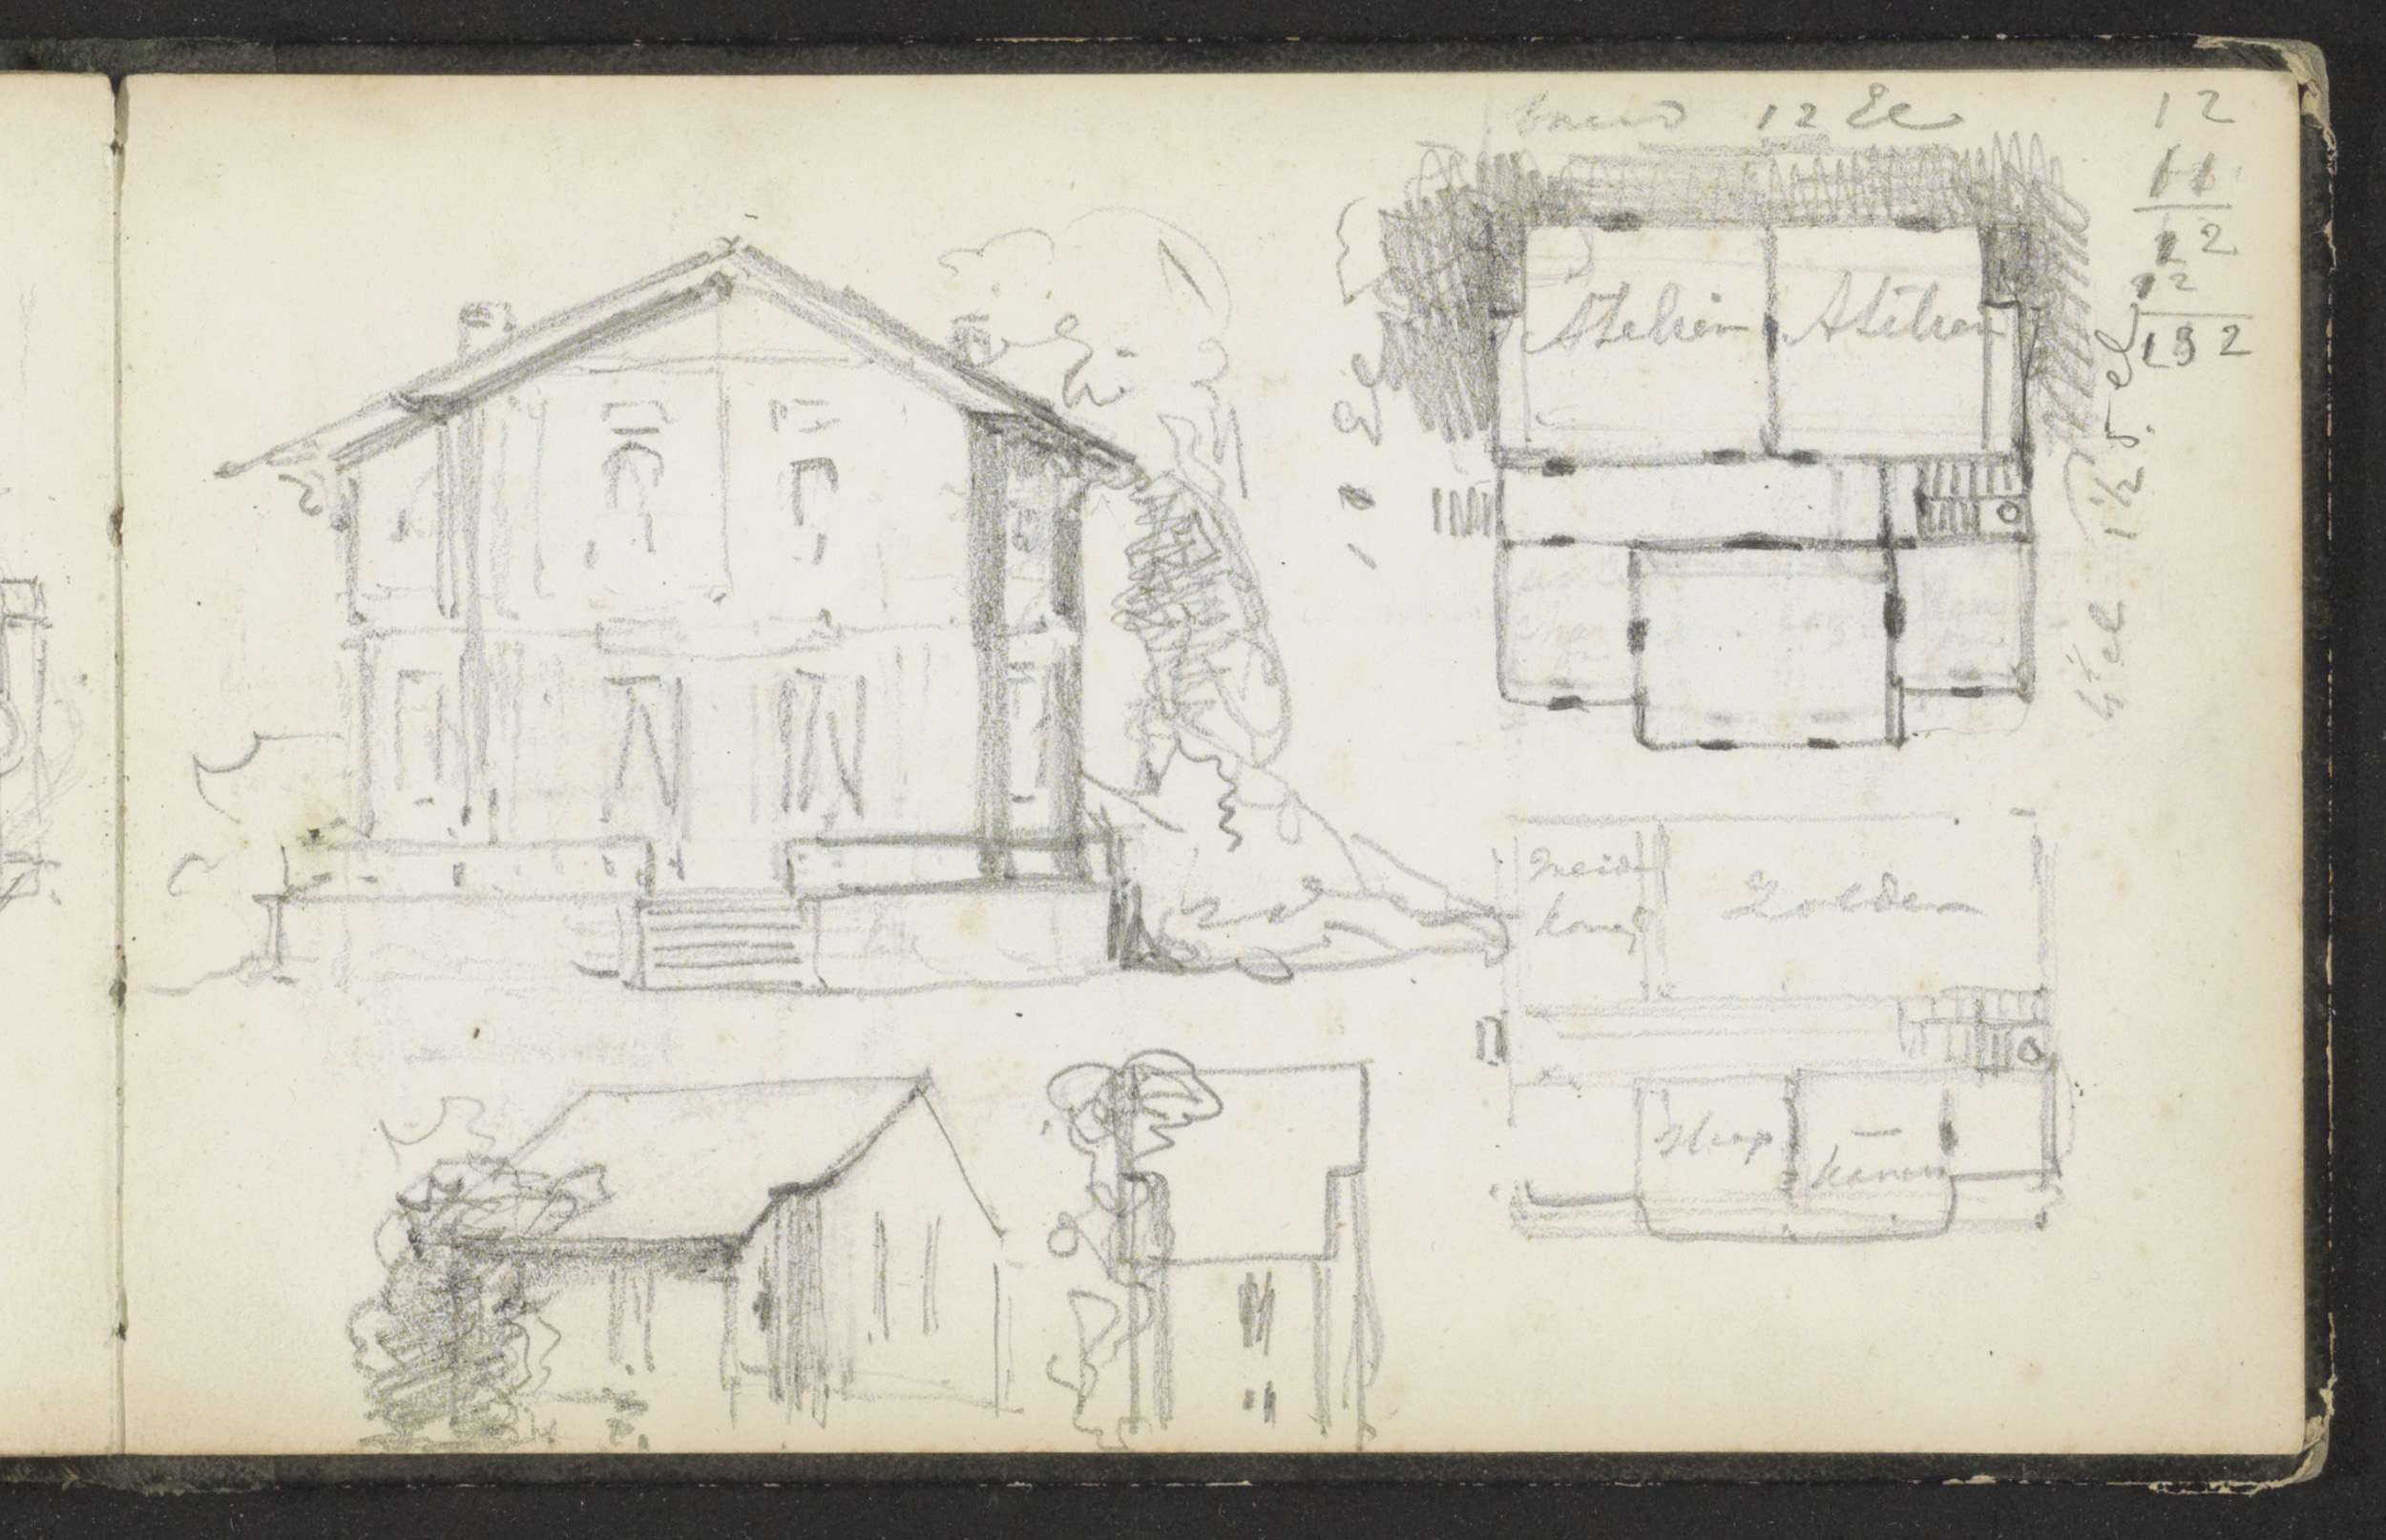 12 El
12
11
12
12
132
10 El
Atelier Atelier
4½ el 1½ 5. el
meid
kamer
Zolder
Slaap -
kamer